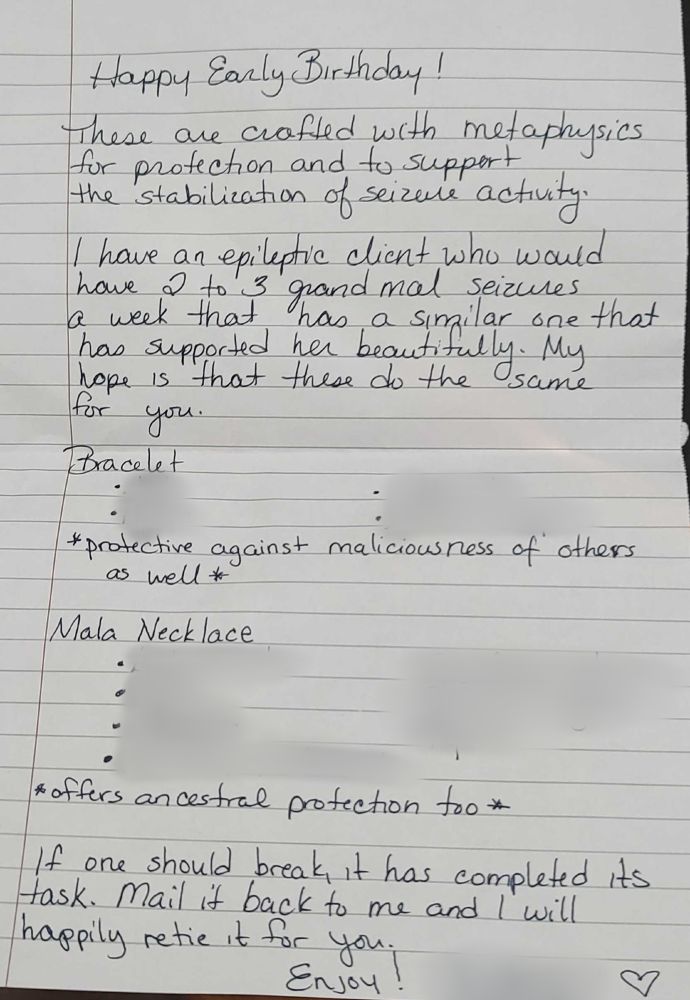 Happy Early Birthday!
These are crafted with metaphysics
for protection and to support
the stabilization of seizure activity.
I have an epileptic client who would
have 2 to 3 grand mal seizures
a week that has a similar one that
has supported her beautifully. My
hope is that these do the same
for you.
Bracelet
*protective against maliciousness of others
as well*
Mala Necklace
*offers ancestral protection too*
If one should break, it has completed its
task. Mail it back to me and I will
happily retie it for you.
Enjoy!